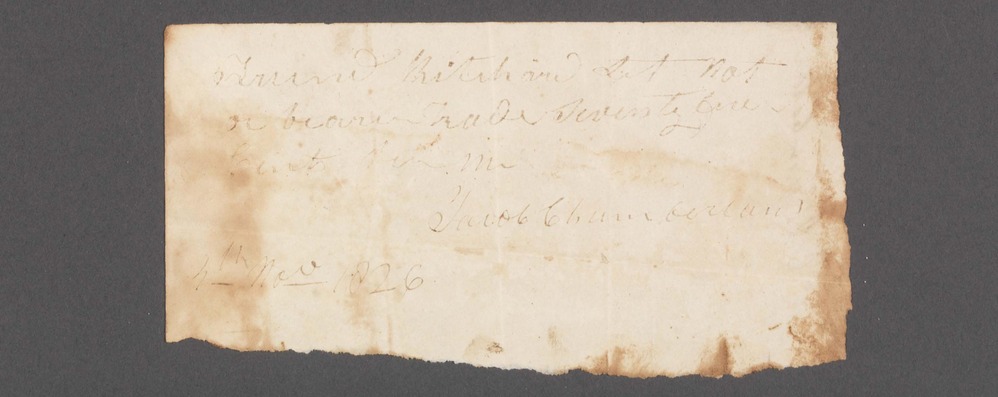 Friend Mitchard Let Nat
or bearer Trade Seventy five
Cents for me
Jacob Chamberlain
4th Nov 1826